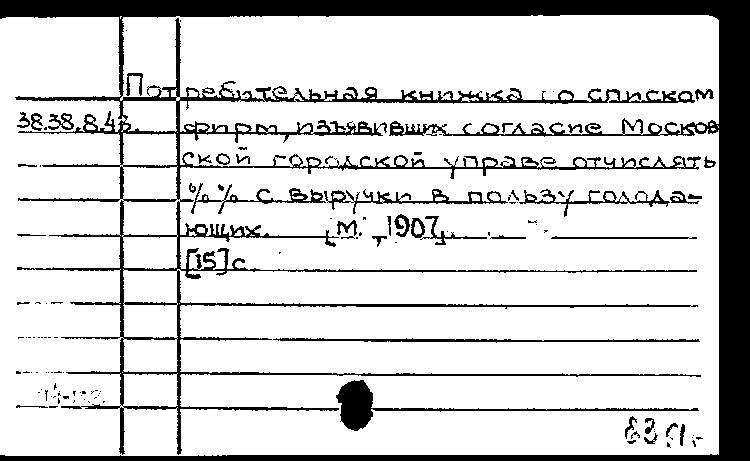 Потребительная книжка со списком
38.38.8.43. фирм, изъявивших согласие Москов
ской городской управе отчислять
%% с выручки в пользу голода-
ющих. [М., 1907].
[15] с.